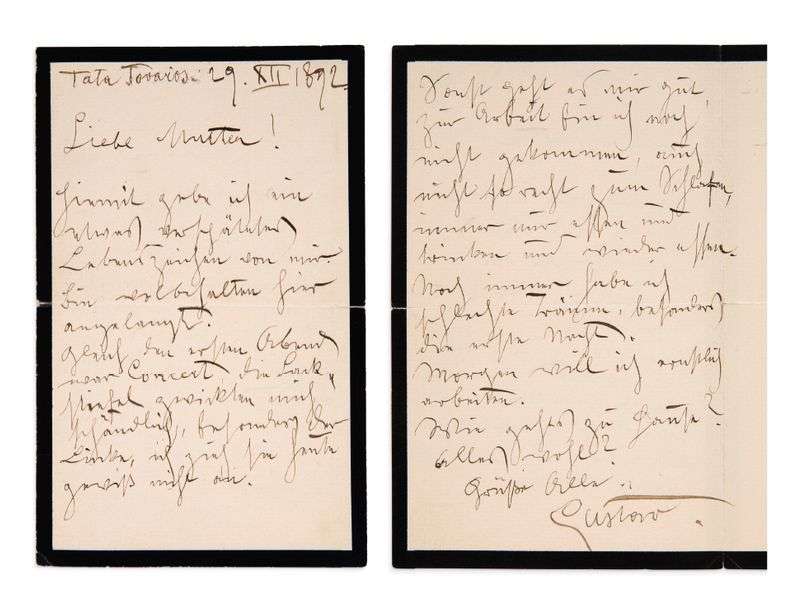 Tata Tovaros. 29. XII 1892.
Liebe Mutter!
hiermit gebe ich ein
etwas verspätetes
Lebenszeichen von mir.
Bin wolbehalten hier
angelangt.
Gleich den ersten Abend
war Concert die Lack-
stiefel zwickten mich
schändlich, besonders der
Linke, ich zieh sie heute
gewiß nicht an.
Sonst geht es mir gut,
zur Arbeit bin ich noch
nicht gekommen, auch
nicht so recht zum Schlafen,
immer nur essen und
trinken und wieder essen.
Noch immer habe ich
schlechte Träume, besonders
die erste Nacht.
Morgen will ich ernstlich
arbeiten.
Wie gehts zu Hause?
Alles wohl?
Grüße Alle.
Gustav.